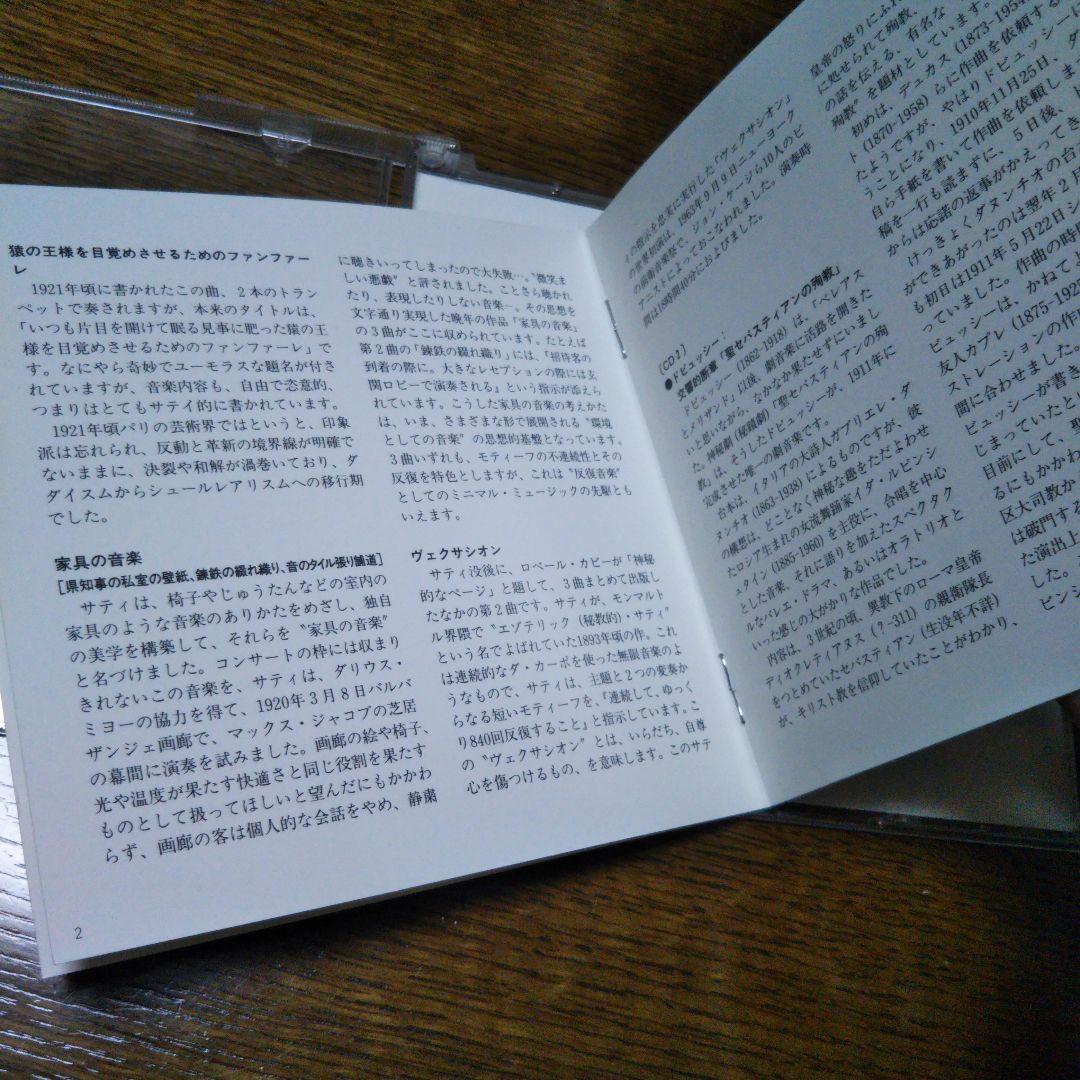 猿の王様を目覚めさせるためのファンファー
レ
1921年頃に書かれたこの曲、2本のトラン
ペットで奏されますが、本来のタイトルは、
「いつも片目を開けて眠る見事に肥った猿の王
様を目覚めさせるためのファンファーレ」で
す。なにやら奇妙でユーモラスな題名が付さ
れていますが、音楽内容も、自由で恣意的、
つまりはとてもサテイ的に書かれています。
1921年頃パリの芸術界ではというと、印象
派は忘れられ、反動と革新の境界線が明確で
ないままに、決裂や和解が渦巻いており、ダ
ダイスムからシュールレアリスムへの移行期
でした。
家具の音楽
[県知事の私室の壁紙、錬鉄の綴れ織り、音のタイル張り舗道]
サティは、椅子やじゅうたんなどの室内の
家具のような音楽のありかたをめざし、独自
の美学を構築して、それらを〝家具の音楽〟
と名づけました。コンサートの枠には収まり
きれないこの音楽を、サティは、ダリウス・
ミヨーの協力を得て、1920年3月8日バルバ
ザンジェ画廊で、マックス・ジャコブの芝居
の幕間に演奏を試みました。画廊の絵や椅子、
光や温度が果たす快適さと同じ役割を果たす
ものとして扱ってほしいと望んだにもかかわ
らず、画廊の客は個人的な会話をやめ、静粛
に聴きいってしまったので大失敗…。〝微笑ま
しい悪戯〟と評されました。ことさら聴かれ
たり、表現したりしない音楽―。その思想を
文字通り実現した晩年の作品「家具の音楽」
の3曲がここに収められています。たとえば
第2曲の「錬鉄の綴れ織り」には、『招待客の
到着の際に。大きなレセプションの際には玄
関ロビーで演奏される』という指示が添えら
れています。こうした家具の音楽の考えかた
は、いま、さまざまな形で展開される〝環境
としての音楽〟の思想的基盤となっています。
3曲いずれも、モティーフの不連続性とその
反復を特色としますが、これは〝反復音楽〟
としてのミニマル・ミュージックの先駆とも
いえます。
ヴェクサシオン
サティ没後に、ロベール・カビーが「神秘
的なページ」と題して、3曲まとめて出版し
たなかの第2曲です。サティが、モンマルト
ル界隈で〝エゾテリック(秘教的)・サティ〟
という名でよばれていた1893年頃の作。これ
は連続的なダ・カーポを使った無限音楽のよ
うなもので、サティは、主題と2つの変奏か
らなる短いモティーフを、「連続して、ゆっく
り840回反復すること」と指示しています。こ
の〝ヴェクサシオン〟とは、いらだち、自尊
心を傷つけるもの、を意味します。このサテ
2
ィの指示を忠実に実行した「ヴェクサシオン」
の世界初演は、1963年9月9日ニューヨーク
の前衛音楽祭で、ジョン・ケージら10人のピ
アニストによっておこなわれました。演奏時
間は18時間40分におよびました。
(CD2)
●ドビュッシー:
交響的断章「聖セバスティアンの殉教」
ドビュッシー(1862-1918)は、「ペレアス
とメリザンド」以後、劇音楽に活路を開きた
いと思いながら、なかなか果たせずにいまし
た。神秘劇(秘蹟劇)「聖セバスティアンの殉
教」は、そうしたドビュッシーが、1911年に
完成させた唯一の劇音楽です。
台本は、イタリアの大詩人ガブリエレ・ダ
ヌンチオ(1863-1938)によるものですが、彼
の構想は、どことなく神秘な趣をただよわせ
たロシア生まれの女流舞踊家イダ・ルビンシ
ュタイン(1885-1960)を主役に、合唱を中心
とした音楽、それに語りを加えたスペクタク
ルなバレエ・ドラマ、あるいはオラトリオと
いった感じの大がかりな作品でした。
内容は、3世紀の頃、異教ドのローマ皇帝
ディオクレティアヌス(?-311)の親衛隊長
をつとめていたセバスティアン(生没年不詳)
が、キリスト教を信仰していたことがわかり、
皇帝の怒りにふれ
に処せられて殉教
の話を伝える、有名な
殉教〟を題材としています。
初めは、デュカス(1873-1954
ト(1870-1958)らに作曲を依頼する
たようですが、やはりドビュッシーに
うことになり、1910年11月25日、ダ
自ら手紙を書いて作曲を依頼しま
稿を一行も読まずに、5日後、ド
からは応諾の返事がかえってき
けっきょくダヌンチオの台
ができあがったのは翌年2月
も初日は1911年5月22日シ
っていました。作曲の時間
ビュッシーは、かねてよ
友人カプレ(1875-192
ストレーションの作
間に合わせました。
ビュッシーが書き
じまっていたと
目前にして、聖
るにもかかわ
区大司教か
は破門する
た演出上
した。
ビンシ